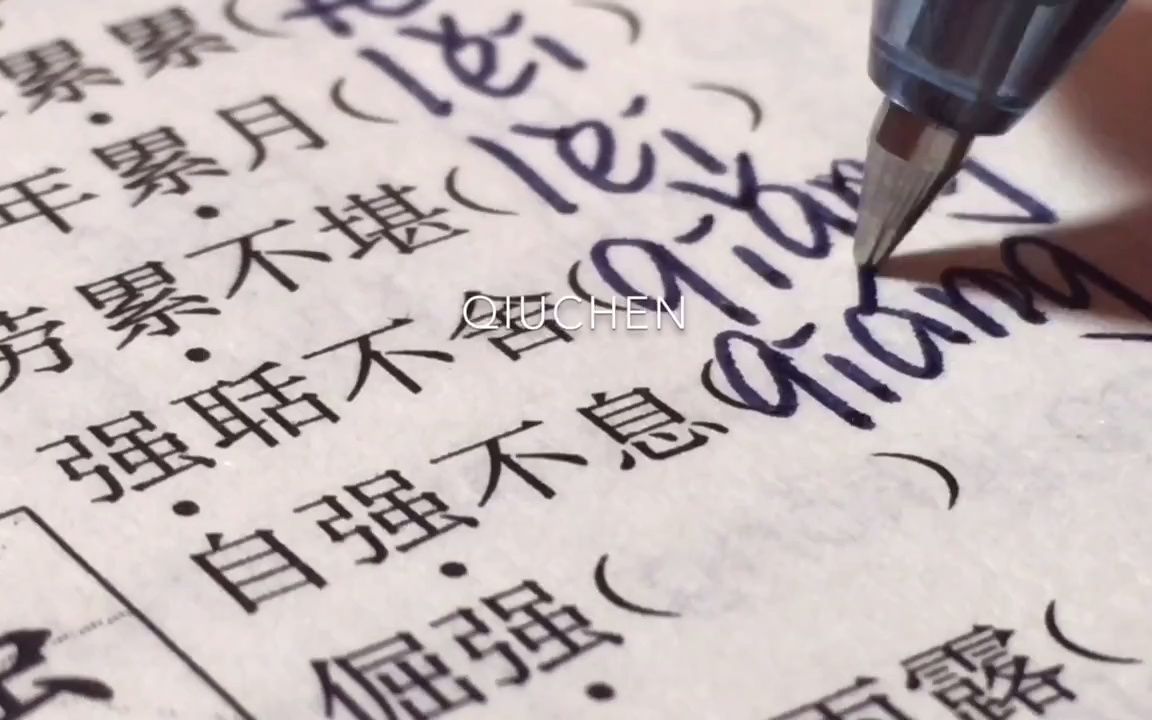 累累(
年累月(lěi)
劳累不堪(lèi)
强聒不舍(qiǎng
自强不息(qiang
倔强( )
露(
QIUCHEN